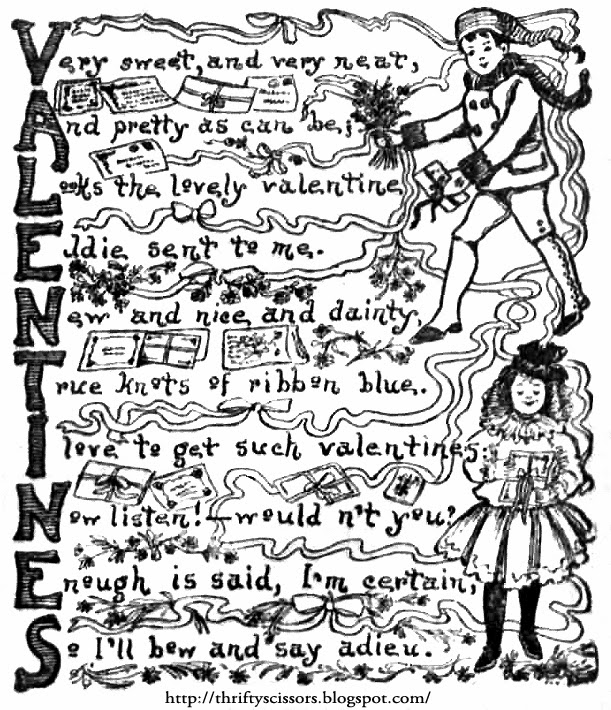 Very sweet, and very neat,
And pretty as can be,
Looks the lovely valentine
Eddie sent to me.
New and nice and dainty,
True knots of ribbon blue.
I love to get such valentines;
Now listen!—would n't you?
Enough is said, I'm certain,
So I'll bow and say adieu.
http://thriftyscissors.blogspot.com/